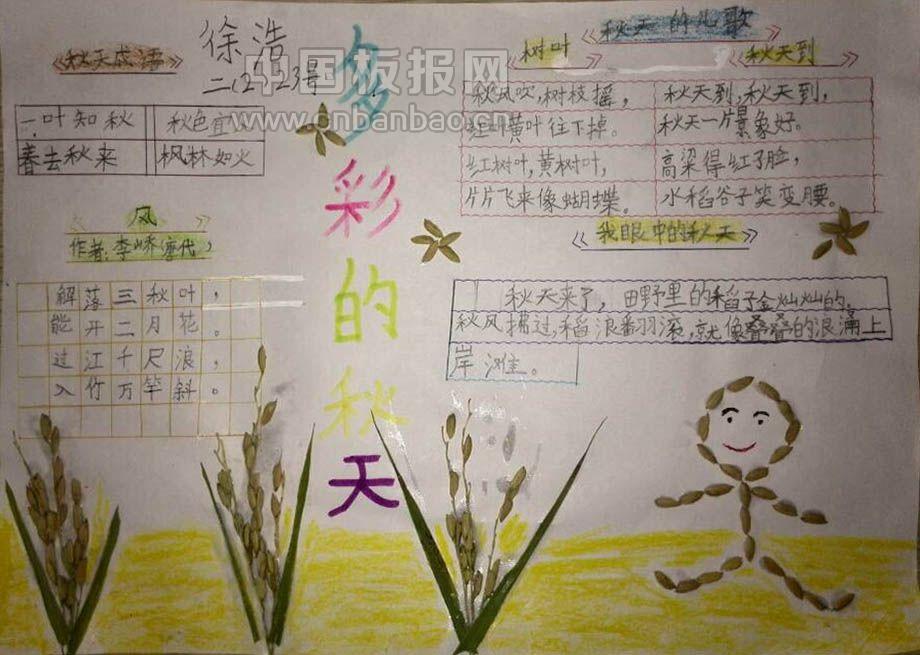 多彩的秋天
徐浩
二(2) 23号
秋天成语
一叶知秋 秋色宜人
春去秋来 枫林如火
风
作者:李峤(唐代)
解落三秋叶,
能开二月花。
过江千尺浪,
入竹万竿斜。
秋天的儿歌
树叶
秋风吹,树枝摇,
红叶黄叶往下掉。
红树叶,黄树叶,
片片飞来像蝴蝶。
秋天到
秋天到,秋天到,
秋天一片景象好。
高梁得红了脸,
水稻谷子笑变腰。
我眼中的秋天
秋天来了,田野里的稻子金灿灿的。
秋风拂过,稻浪翻滚,就像叠叠的浪涌上
岸滩。
中国板报网
www.cnbanbao.cn